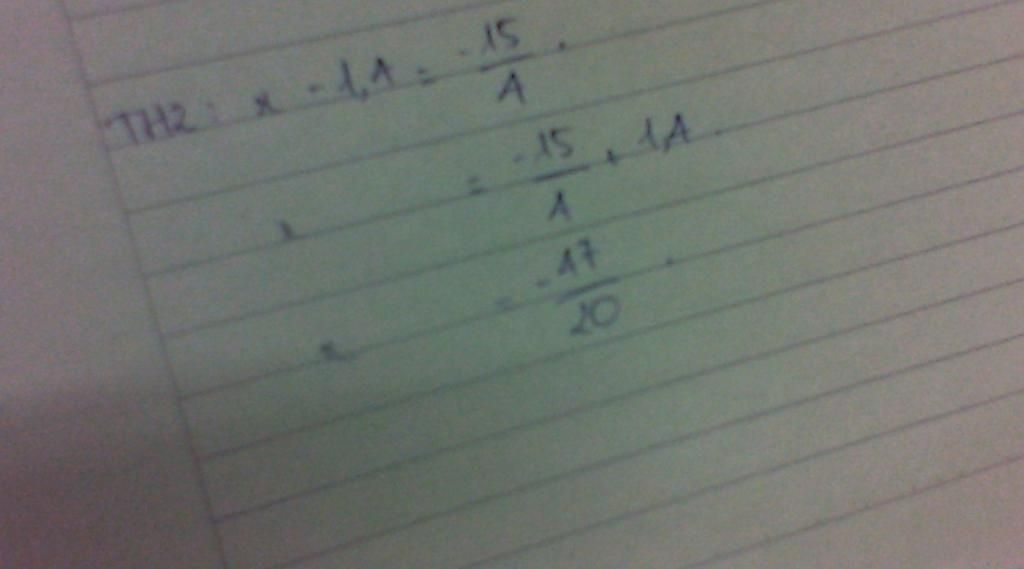 TH2: x - 1,4 = -15/4 .
x = -15/4 + 1,4 .
x = -47/20 .